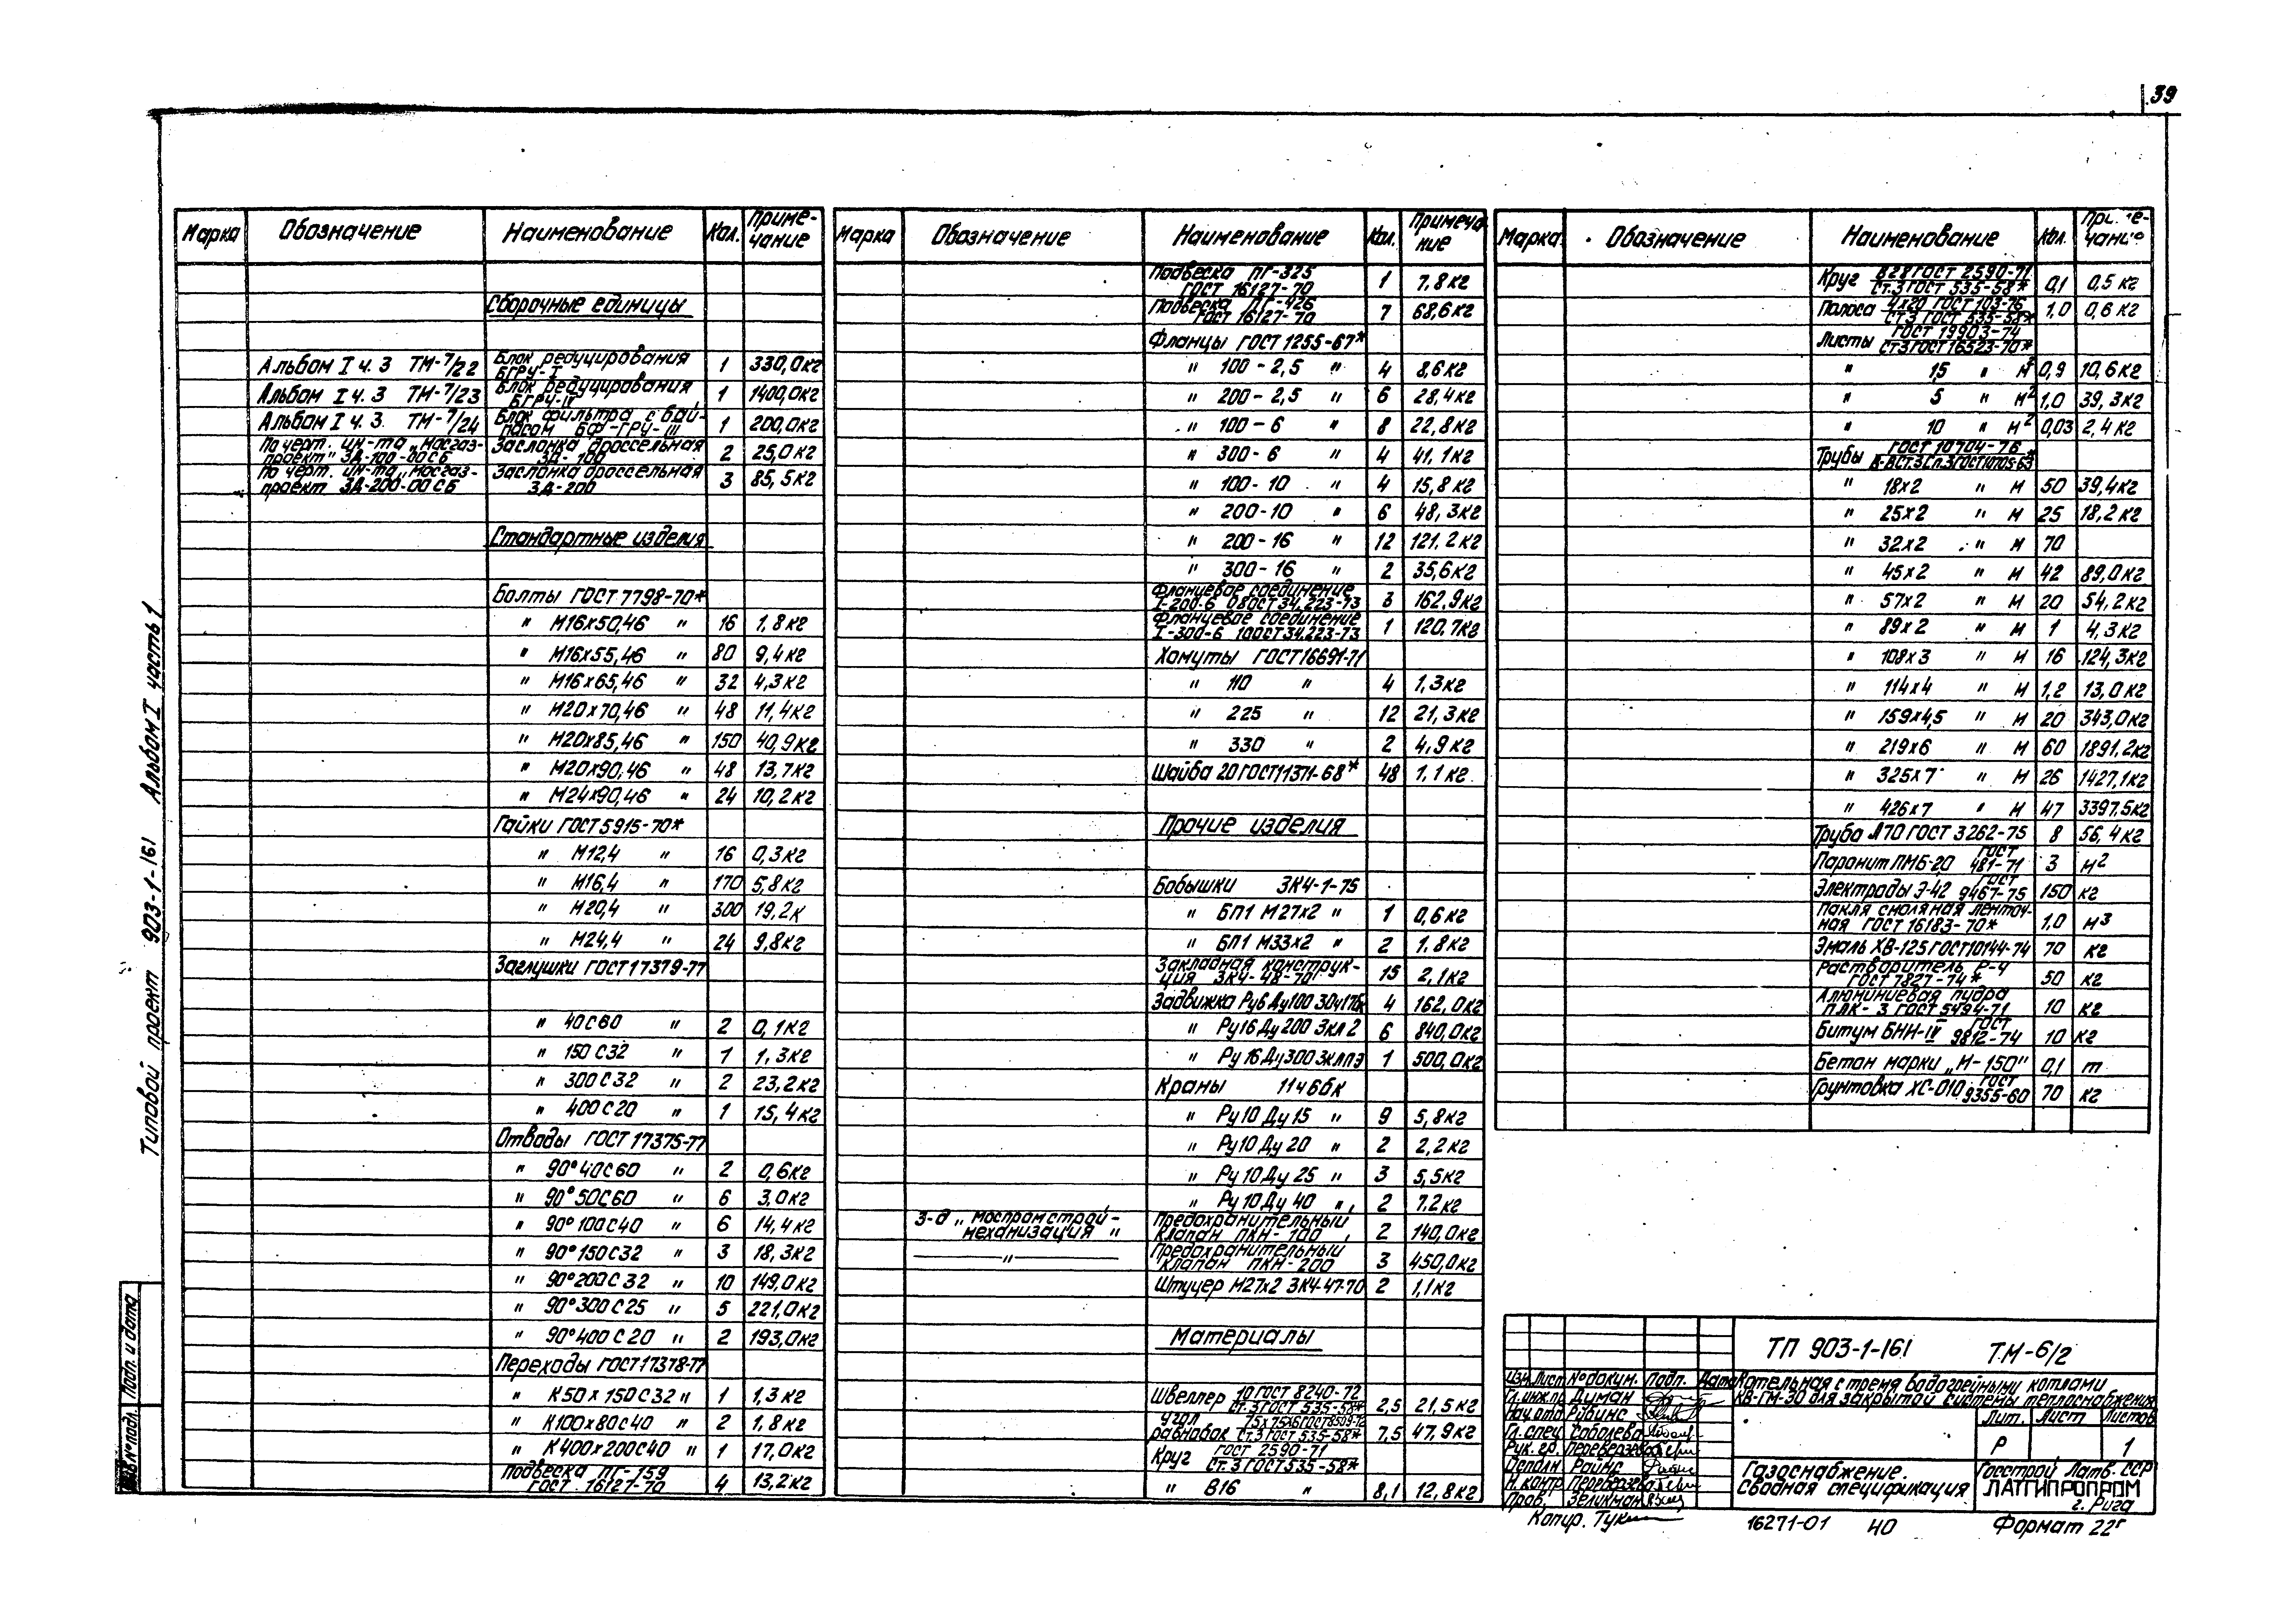 39
Типовой проект 903-1-161 Альбом I часть 1
Марка Обозначение Наименование Кол. Приме-чание
Сборочные единицы
Альбом I ч. 3 ТМ-7/22 Блок редуцирования БГРУ-I 1 330,0кг
Альбом I ч. 3 ТМ-7/23 Блок редуцирования БГРУ-II 1 1400,0кг
Альбом I ч. 3. ТМ-7/24 Блок фильтра с бай-пасом БФ-ГРУ-III 1 200,0кг
По черт. ин-та „Мосгаз-проект" ЗД-100-00СБ Заслонка дроссельная ЗД-100 2 25,0кг
По черт. ин-та „Мосгаз-проект ЗД-200-00СБ Заслонка дроссельная ЗД-200 3 85,5кг
Стандартные изделия
Болты ГОСТ 7798-70*
" М16х50,46 " 16 1,8кг
" М16х55,46 " 80 9,4кг
" М16х65,46 " 32 4,3кг
" М20х70,46 " 48 11,4кг
" М20х85,46 " 150 40,9кг
" М20х90,46 " 48 13,7кг
" М24х90,46 " 24 10,2кг
Гайки ГОСТ 5915-70*
" М12,4 " 16 0,3кг
" М16,4 " 170 5,8кг
" М20,4 " 300 19,2к
" М24,4 " 24 9,8кг
Заглушки ГОСТ 17379-77
" 40С60 " 2 0,1кг
" 150С32 " 1 1,3кг
" 300С32 " 2 23,2кг
" 400С20 " 1 15,4кг
Отводы ГОСТ 17375-77
" 90°40С60 " 2 0,6кг
" 90°50С60 " 6 3,0кг
" 90°100С40 " 6 14,4кг
" 90°150С32 " 3 18,3кг
" 90°200С32 " 10 149,0кг
" 90°300С25 " 5 221,0кг
" 90°400С20 " 2 193,0кг
Переходы ГОСТ 17378-77
" К50х150С32 " 1 1,3кг
" К100х80С40 " 2 1,8кг
" К400х200С40 " 1 17,0кг
Подвеска ПГ-159 ГОСТ 16127-70 4 13,2кг
Марка Обозначение Наименование Кол. Примеча ние
Подвеска ПГ-325 ГОСТ 16127-70 1 7,8кг
Подвеска ПГ-426 ГОСТ 16127-70 7 68,6кг
Фланцы ГОСТ 1255-67*
" 100-2,5 " 4 8,6кг
" 200-2,5 " 6 28,4кг
" 100-6 " 8 22,8кг
" 300-6 " 4 41,1кг
" 100-10 " 4 15,8кг
" 200-10 " 6 48,3кг
" 200-16 " 12 121,2кг
" 300-16 " 2 35,6кг
Фланцевое соединение I-200-6 08ОСТ 34.223-73 6 162,9кг
Фланцевое соединение I-300-6 10ОСТ 34.223-73 1 120,7кг
Хомуты ГОСТ 16691-71
" 110 " 4 1,3кг
" 225 " 12 21,3кг
" 330 " 2 4,9кг
Шайба 20 ГОСТ 11371-68* 48 1,1кг
Прочие изделия
Бобышки ЗК4-1-75
" БП1 М27х2 " 1 0,6кг
" БП1 М33х2 " 2 1.8кг
Закладная конструк-ция ЗК4-48-70 15 2,1кг
Задвижка Ру6 Ду100 30ч17бк 4 162,0кг
" Ру16 Ду200 3кл2 6 840,0кг
" Ру16 Ду300 3клпэ 1 500,0кг
Краны 11ч6бк
" Ру10 Ду15 " 9 5,8кг
" Ру10 Ду20 " 2 2,2кг
" Ру10 Ду25 " 3 5,5кг
" Ру10 Ду40 " 2 7.2кг
З-д „Моспромстрой-механизация" Предохранительный клапан ПКН-100 2 140,0кг
" Предохранительный клапан ПКН-200 3 450,0кг
Штуцер М27х2 ЗК4-47-70 2 1,1кг
Материалы
Швеллер 10 ГОСТ 8240-72 Ст.3 ГОСТ 535-58* 2,5 21,5кг
Угол равнобок 75х75х6 ГОСТ 8509-72 Ст.3 ГОСТ 535-58* 7,5 47,9кг
Круг ГОСТ 2590-71 Ст.3 ГОСТ 535-58*
" В16 " 8,1 12,8кг
Марка Обозначение Наименование Кол.
Круг В28 ГОСТ 2590-71 Ст.3 ГОСТ 535-58* 0,1 0,5кг
Полоса 4х20 ГОСТ 103-76 Ст.3 ГОСТ 535-58* 1,0 0,6кг
Листы ГОСТ 19903-74 Ст3 ГОСТ 16523-70*
" 1,5 " м² 0,9 10,6кг
" 5 " м² 1,0 39,3кг
" 10 " м² 0,03 2,4кг
Трубы ГОСТ 10704-76 В-ВСт.3Сп.3 ГОСТ 10705-63*
" 18х2 " м 50 39,4кг
" 25х2 " м 25 18,2кг
" 32х2 " м 70
" 45х2 " м 42 89,0кг
" 57х2 " м 20 54,2кг
" 89х2 " м 1 4,3кг
" 108х3 " м 16 124,3кг
" 114х4 " м 1,2 13,0кг
" 159х4,5 " м 20 343,0кг
" 219х6 " м 60 1891,2кг
" 325х7 " м 26 1427,1кг
" 426х7 " м 47 3397,5кг
Труба Л70 ГОСТ 3262-75 8 56,4кг
Паронит ПМБ-2,0 ГОСТ 481-71 3 м²
Электроды Э-42 ГОСТ 9467-75 150 кг
Пакля смоляная ленточ-ная ГОСТ 16183-70* 1,0 м³
Эмаль ХВ-125 ГОСТ 10144-74 70 кг
Растворитель Р-4 ГОСТ 7827-74* 50 кг
Алюминиевая пудра ПЛК-3 ГОСТ 5494-71 10 кг
Битум БНИ-IV ГОСТ 9812-74 10 кг
Бетон марки „М-150" 0,1 т
Грунтовка ХС-010 ГОСТ 9355-60 70 кг
ТП 903-1-161 ТМ-6/2
Изм. Лист № докум. Подп. Дата
Котельная с тремя водогрейными котлами
КВ-ГМ-30 для закрытой системы теплоснабжения
Гл. инж. пр. Думан
Нач. отд. Рубинс
Гл. спец. Соболева
Рук. гр. Переверзева
Исполн Райнс
Н. контр. Переверзева
Пров. Зеликман
Лит. Лист Листов
Р 1
Газоснабжение.
Сводная спецификация
Госстрой Латв. ССР
ЛАТГИПРОПРОМ
г. Рига
Копир.
16271-01 40 Формат 22г
Инв № подл. Подп. и дата